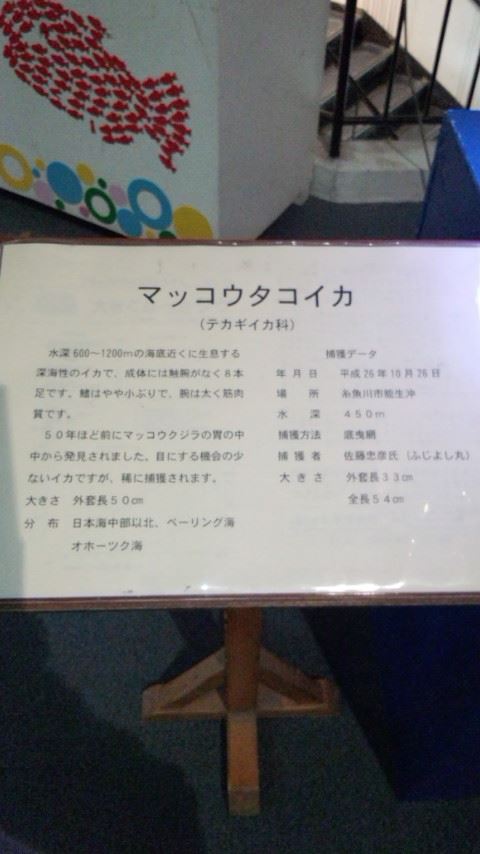 マッコウタコイカ
(テカギイカ科)
水深600~1200mの海底近くに生息する
深海性のイカで、成体には触腕がなく8本
足です。鰭はやや小ぶりで、腕は太く筋肉
質です。
50年ほど前にマッコウクジラの胃の中
中から発見されました。目にする機会の少
ないイカですが、稀に捕獲されます。
大きさ 外套長50㎝
分布 日本海中部以北、ベーリング海
オホーツク海
捕獲データ
年月日 平成26年10月26日
場所 糸魚川市能生沖
水深 450m
捕獲方法 底曳網
捕獲者 佐藤忠彦氏(ふじよし丸)
大きさ 外套長33㎝
全長54㎝